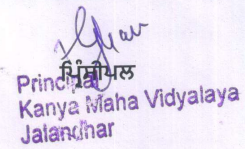 ਪ੍ਰਿੰਸੀਪਲ
Principal
Kanya Maha Vidyalaya
Jalandhar